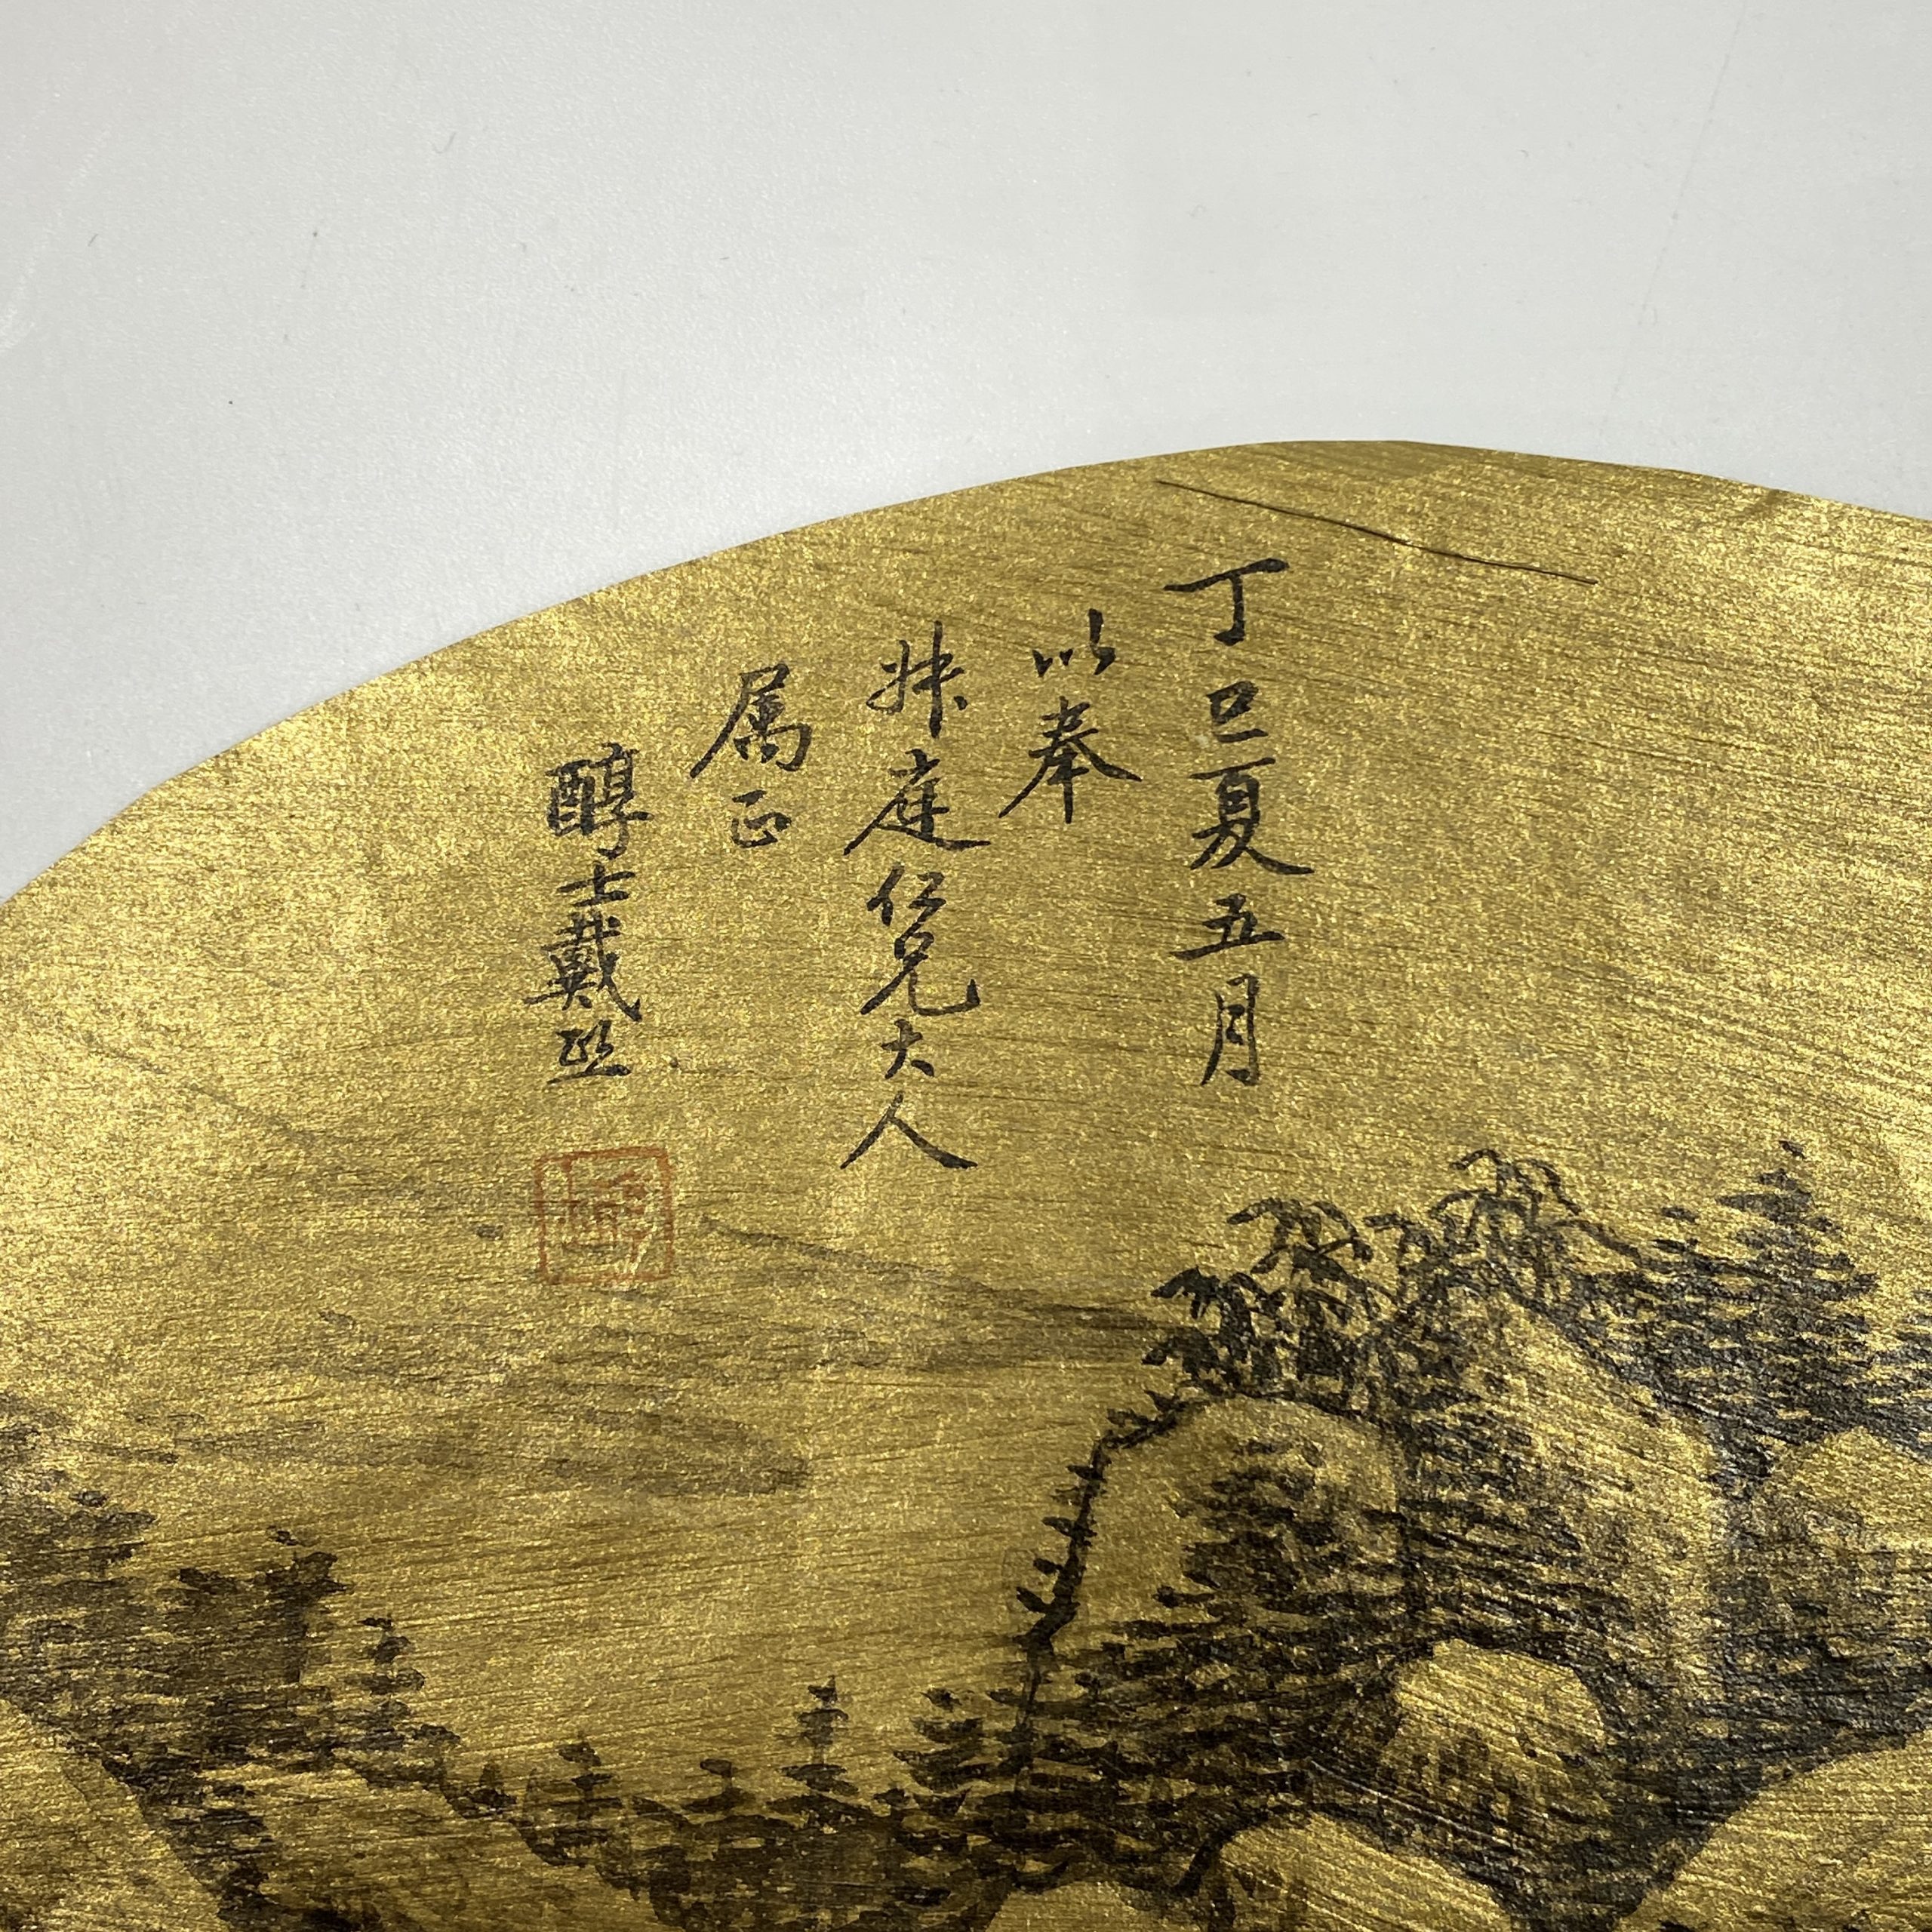 丁巳夏五月
以奉
庭仁兄大人
属正
醇士戴熙